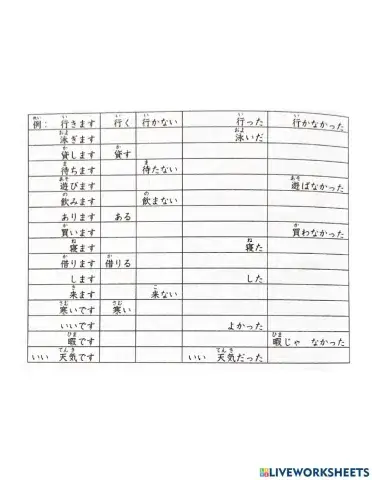 例： 行きます 行く 行かない 行った 行かなかった
泳ぎます 泳いだ
貸します 貸す
待ちます 待たない
遊びます 遊ばなかった
飲みます 飲まない
あります ある
買います 買わなかった
寝ます 寝た
借ります 借りる
します した
来ます 来ない
寒いです 寒い
いいです よかった
暇です 暇じゃ なかった
いい 天気です いい 天気だった
LIVEWORKSHEETS